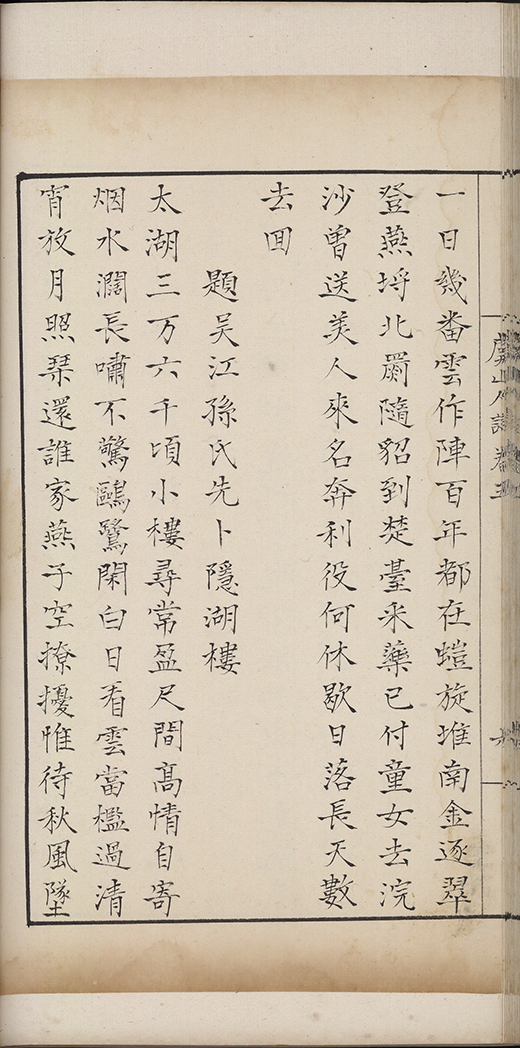 一日幾番雲作陣百年都在螘旋堆南金逐翠
登燕埒北罽隨貂到楚臺采藥已付童女去浣
沙曾送美人來名奔利役何休歇日落長天數
去回
題吴江孫氏先卜隱湖樓
太湖三万六千頃小樓尋常盈尺間髙情自寄
烟水濶長嘯不驚鷗鷺閑白日看雲當檻過清
宵放月照琴還誰家燕子空撩擾惟待秋風墜
虞山人詩卷三